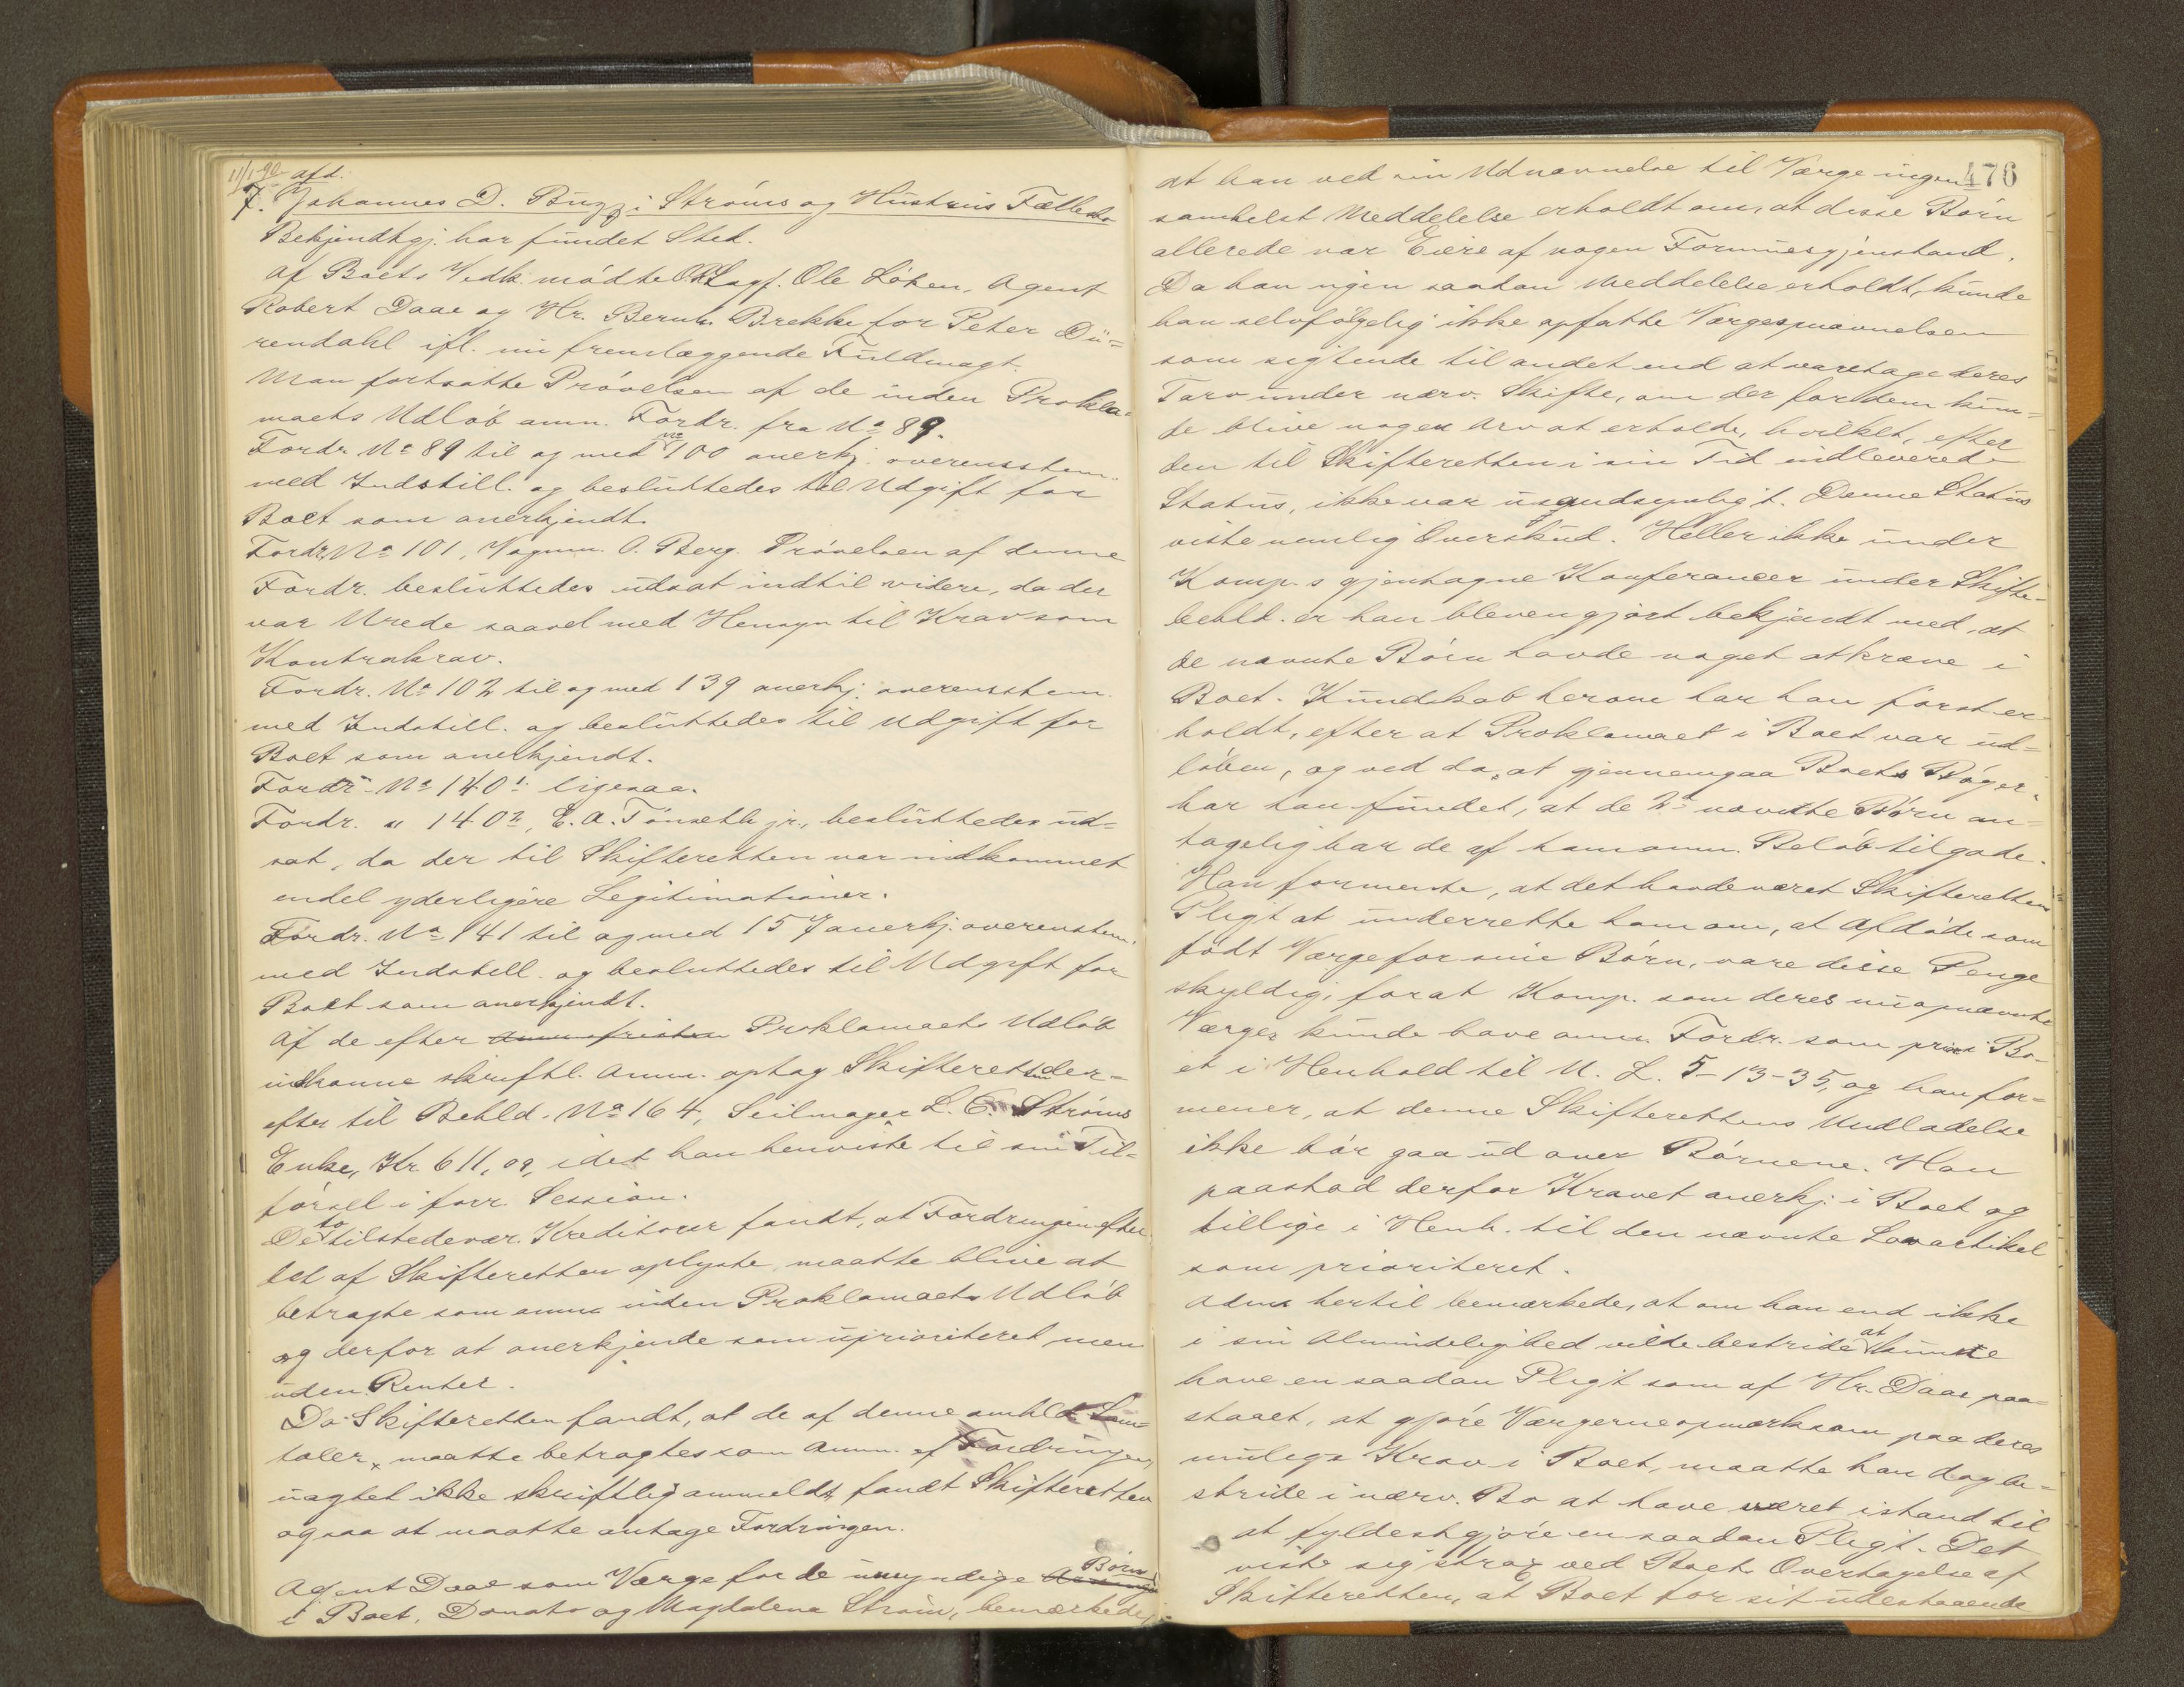 11/1 90 afd.
7. Johannes D. Buzzi Ströms og Hustrus Fællesbo
Bekjendtgj. har fundet Sted.
Af Boets Vedk. mödte ORSagf. Ole Löken, Agent
Robert Daae og Hr. Bernh. Brekke for Peter Dü-
rendahl ifl. nu fremlæggende Fuldmagt.
Man fortsatte Prövelsen af de inden Prokla-
maets Udlöb anm. Fordr. fra No 89.
Fordr. No 89 til og med No 100 anerkj. overensstem.
med Indstill. og besluttedes til Udgift for
Boet som anerkjendt.
Fordr. No 101, Vognm. O. Berg. Prövelsen af denne
Fordr. besluttedes udsat indtil videre, da der
var Urede saavel med Hensyn til Krav som
Kontrakrav.
Fordr. No 102 til og med 139 anerkj. overensstem.
med Indstill. og besluttedes til Udgift for
Boet som anerkjendt.
Fordr. No 140 1: ligesaa.
Fordr. " 140 2, E. A. Tönseth jr., besluttedes ud-
sat, da der til Skifteretten var indkommet
endel yderligere Legitimationer.
Fordr. No 141 til og med 157 anerkj. overenstem.
med Indstill. og besluttedes til Udgift for
Boet som anerkjendt.
Af de efter Anmufristen Proklamaets Udlöb
indkomne skriftl. Anm. optog Skifteretten der-
efter til Behld. No 164, Seilmager L. C. Ströms
Enke, Kr 611,09, idet han henviste til sin Til-
försel i forr. Session.
De to tilstedevær. Kreditorer fandt, at Fordringen efter
det af Skifteretten oplyste, maatte blive at
betragte som anm. inden Proklamaets Udlöb
og derfor at anerkjende som uprioriteret men
uden Renter.
Da Skifteretten fandt, at de af denne omhldt. Sam-
taler, maatte betragtes som Anm. af Fordringen,
uagtet ikke skriftlig anmeldt, fandt Skifteretten
ogsaa at maatte antage Fordringen.
Agent Daae som Værge for de umyndige Börn
i Boet, Donato og Magdalena Ström, bemærkede,
476
at han ved sin Udnævnelse til Værge ingen
somhelst Meddelelse erholdt om, at disse Börn
allerede var Eiere af nogen Formuesgjenstand.
Da han ingen saadan Meddelelse erholdt, kunde
han selvfölgelig ikke opfatte Værgeopnævnelsen
som sigtende til andet end at varetage deres
Tarv under nærv. Skifte, om der for dem kun-
de blive nogen Arv at erholde, hvilket, efter
den til Skifteretten i sin Tid indleverede
Status, ikke var usandsynligt. Denne Status
viste nemlig Overskud. Heller ikke under
Komp.s gjentagne Konferancer under Skifte-
behld. er han bleven gjort bekjendt med, at
de nævnte Börn havde noget at kræve i
Boet. Kundskab herom har han först er-
holdt, efter at Proklamaet i Boet var ud-
löben, og ved da, at gjennemgaa Boets Böger,
har han fundet, at de 2de nævnte Börn an-
tagelig har de af ham anm. Belöb tilgode.
Han formente, at det havde været Skifterettens
Pligt at underrette ham om, at Afdöde som
födt Værge for sine Börn, vare disse Penge
skyldig, forat Komp. som deres nu opnævnte
Værge kunde have anm. Fordr. som prior. i Bo-
et i Henhold til N. L. 5-13-35, og han for-
mener, at denne Skifterettens Undladelse
ikke bör gaa ud over Börnene. Han
paastod derfor Kravet anerkj. i Boet og
tillige i Henh. til den nævnte Lovartikel
som prioriteret.
Adm. hertil bemærkede, at om han end ikke
i sin Almindelighed vilde bestride at kunne
have en saadan Pligt som af Hr. Daae paa-
staaet, at gjöre Værgerne opmærksom paa deres
mulige Krav i Boet, maatte han dog be-
stride i nærv. Bo at have været istand til
at fyldestgjöre en saadan Pligt. Det
viste sig strax ved Boets Overtagelse af
Skifteretten, at Boet for sit udestaaende